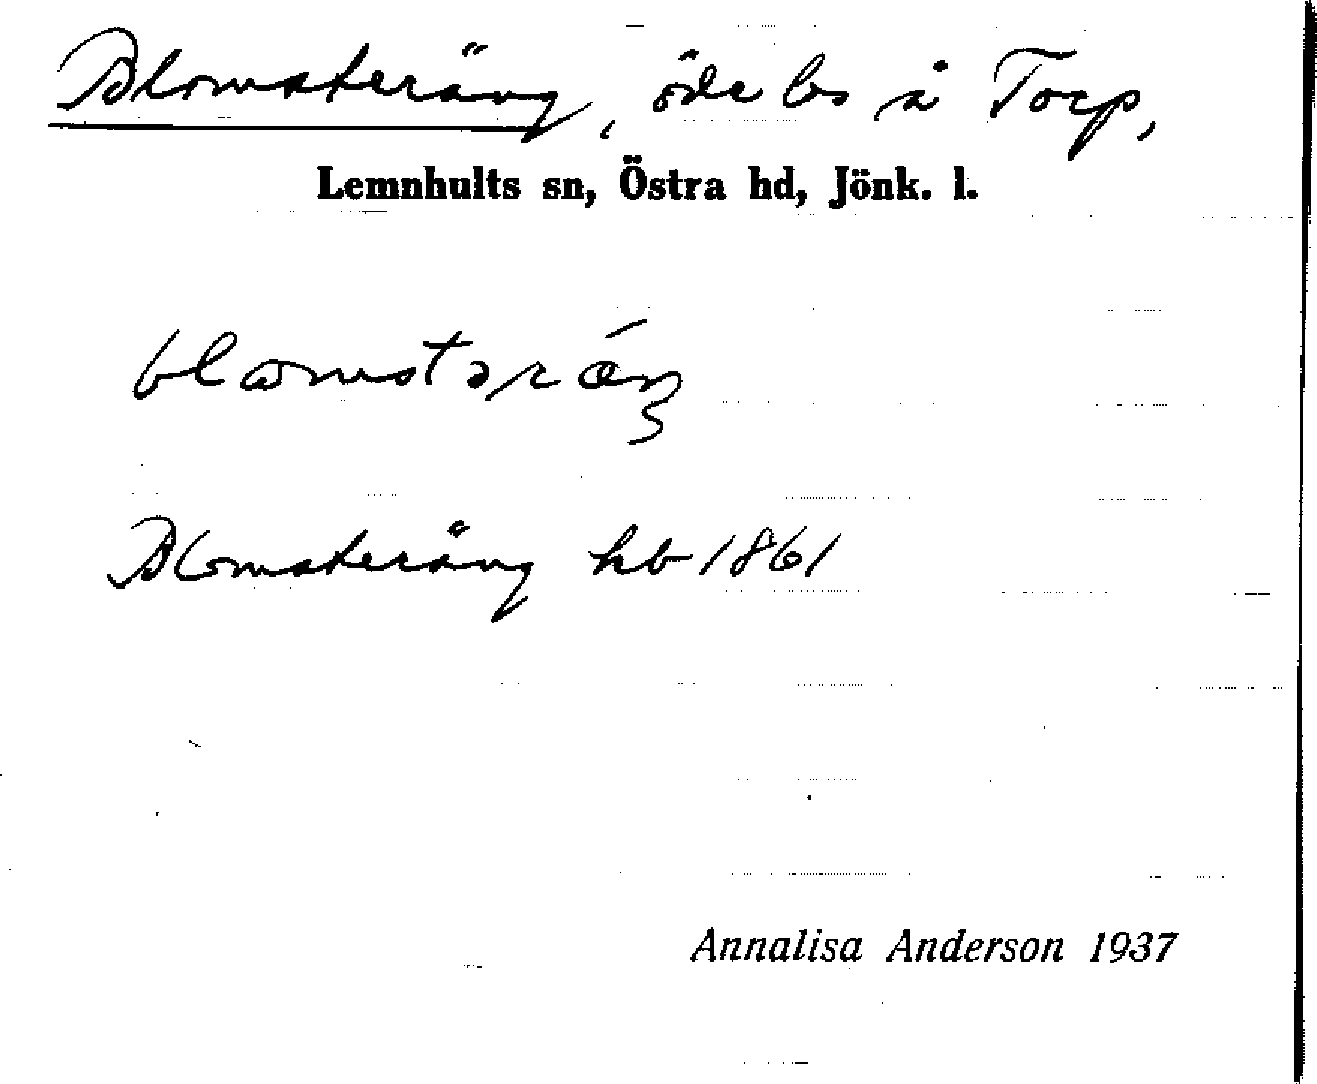 Blomsteräng, öde ls å Torp,
Lemnhults sn, Östra hd, Jönk. l.
Blomsteräng hb 1861
Annalisa Anderson 1937